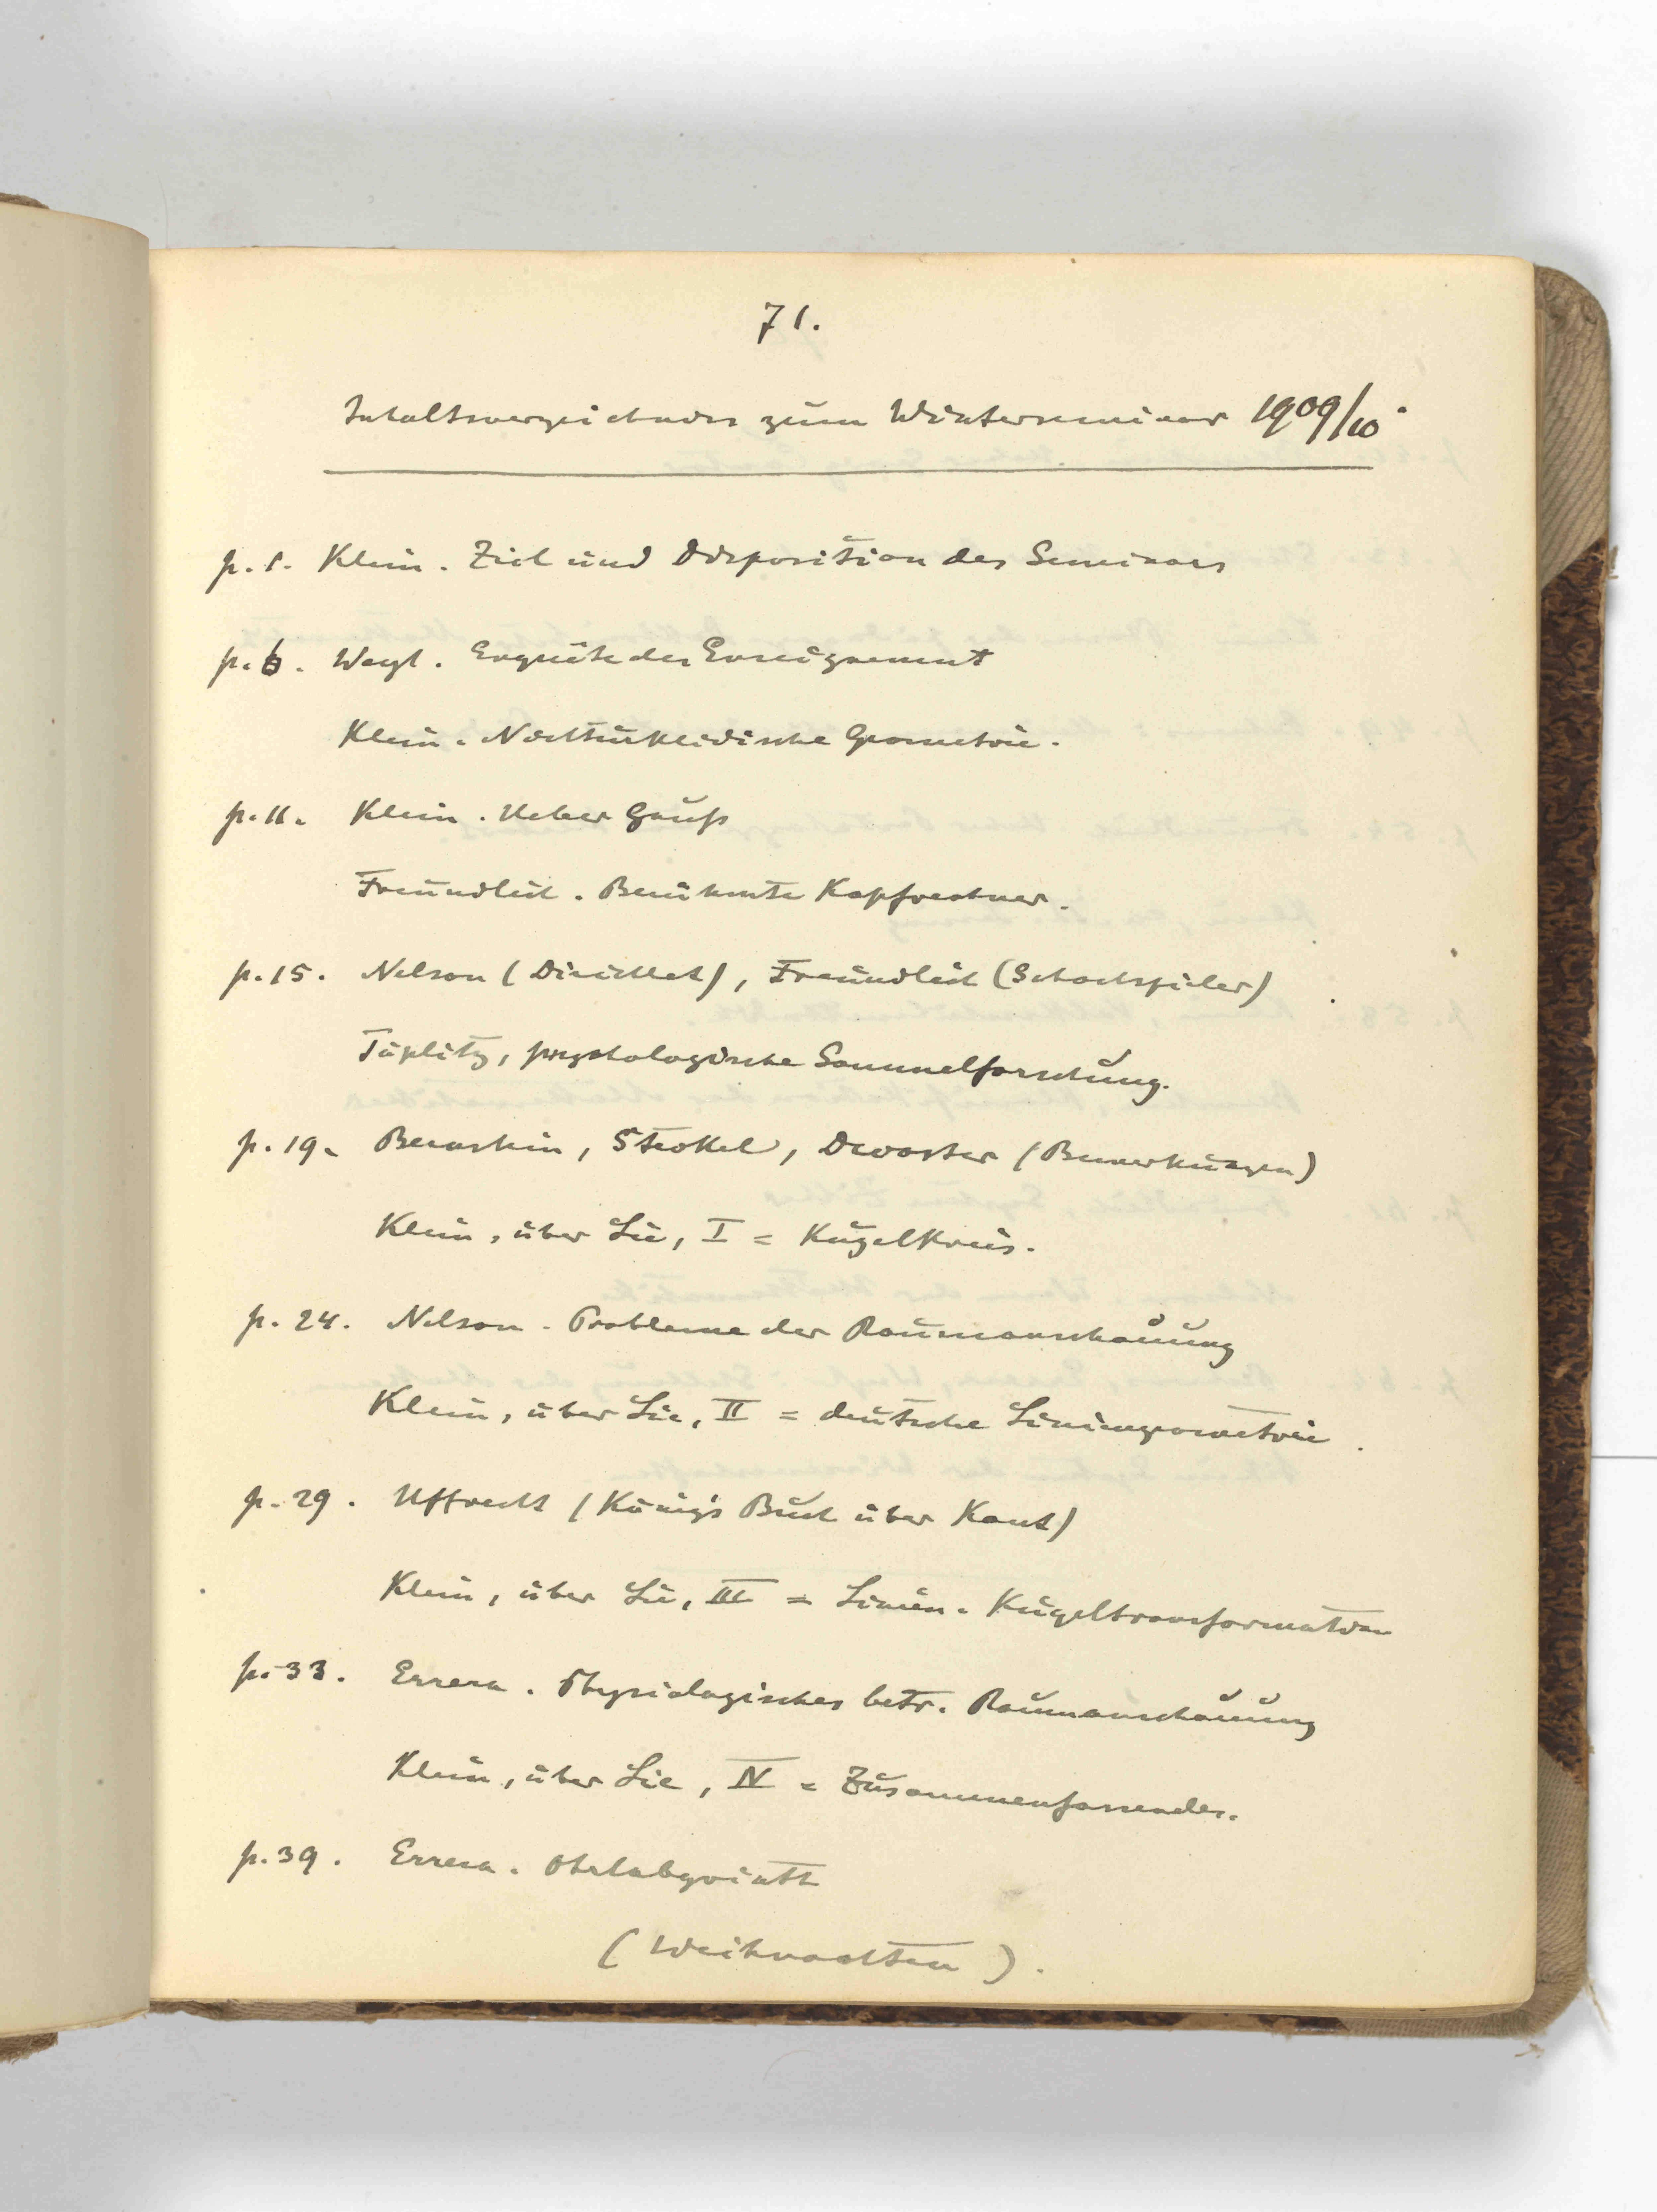 71.
Inhaltsverzeichnis zum Winterseminar 1909/10.
p. 1. Klein. Ziel und Disposition des Seminars
p. 6. Weyl. Enquête des Enseignement
Klein. Nichteuklidische Geometrie.
p. 11. Klein. Ueber Gauß
Freundlich. Berühmte Kopfrechner.
p. 15. Nelson (Dirichlet), Freundlich (Schachspieler)
Töplitz, psychologische Sammelforschung.
p. 19. Bernstein, Steckel, Drooster (Bemerkungen)
Klein, über Lie, I = Kugelkreis.
p. 24. Nelson. Probleme der Raumanschauung
Klein, über Lie, II = deutsche Liniengeometrie.
p. 29. Uffrecht (König's Buch über Kant)
Klein, über Lie, III = Linien-Kugeltransformation
p. 33. Errera. Physiologisches betr. Raumanschauung
Klein, über Lie, IV = Zusammenfassendes.
p. 39. Errera. Ohrlabyrinth
(Weihnachten).